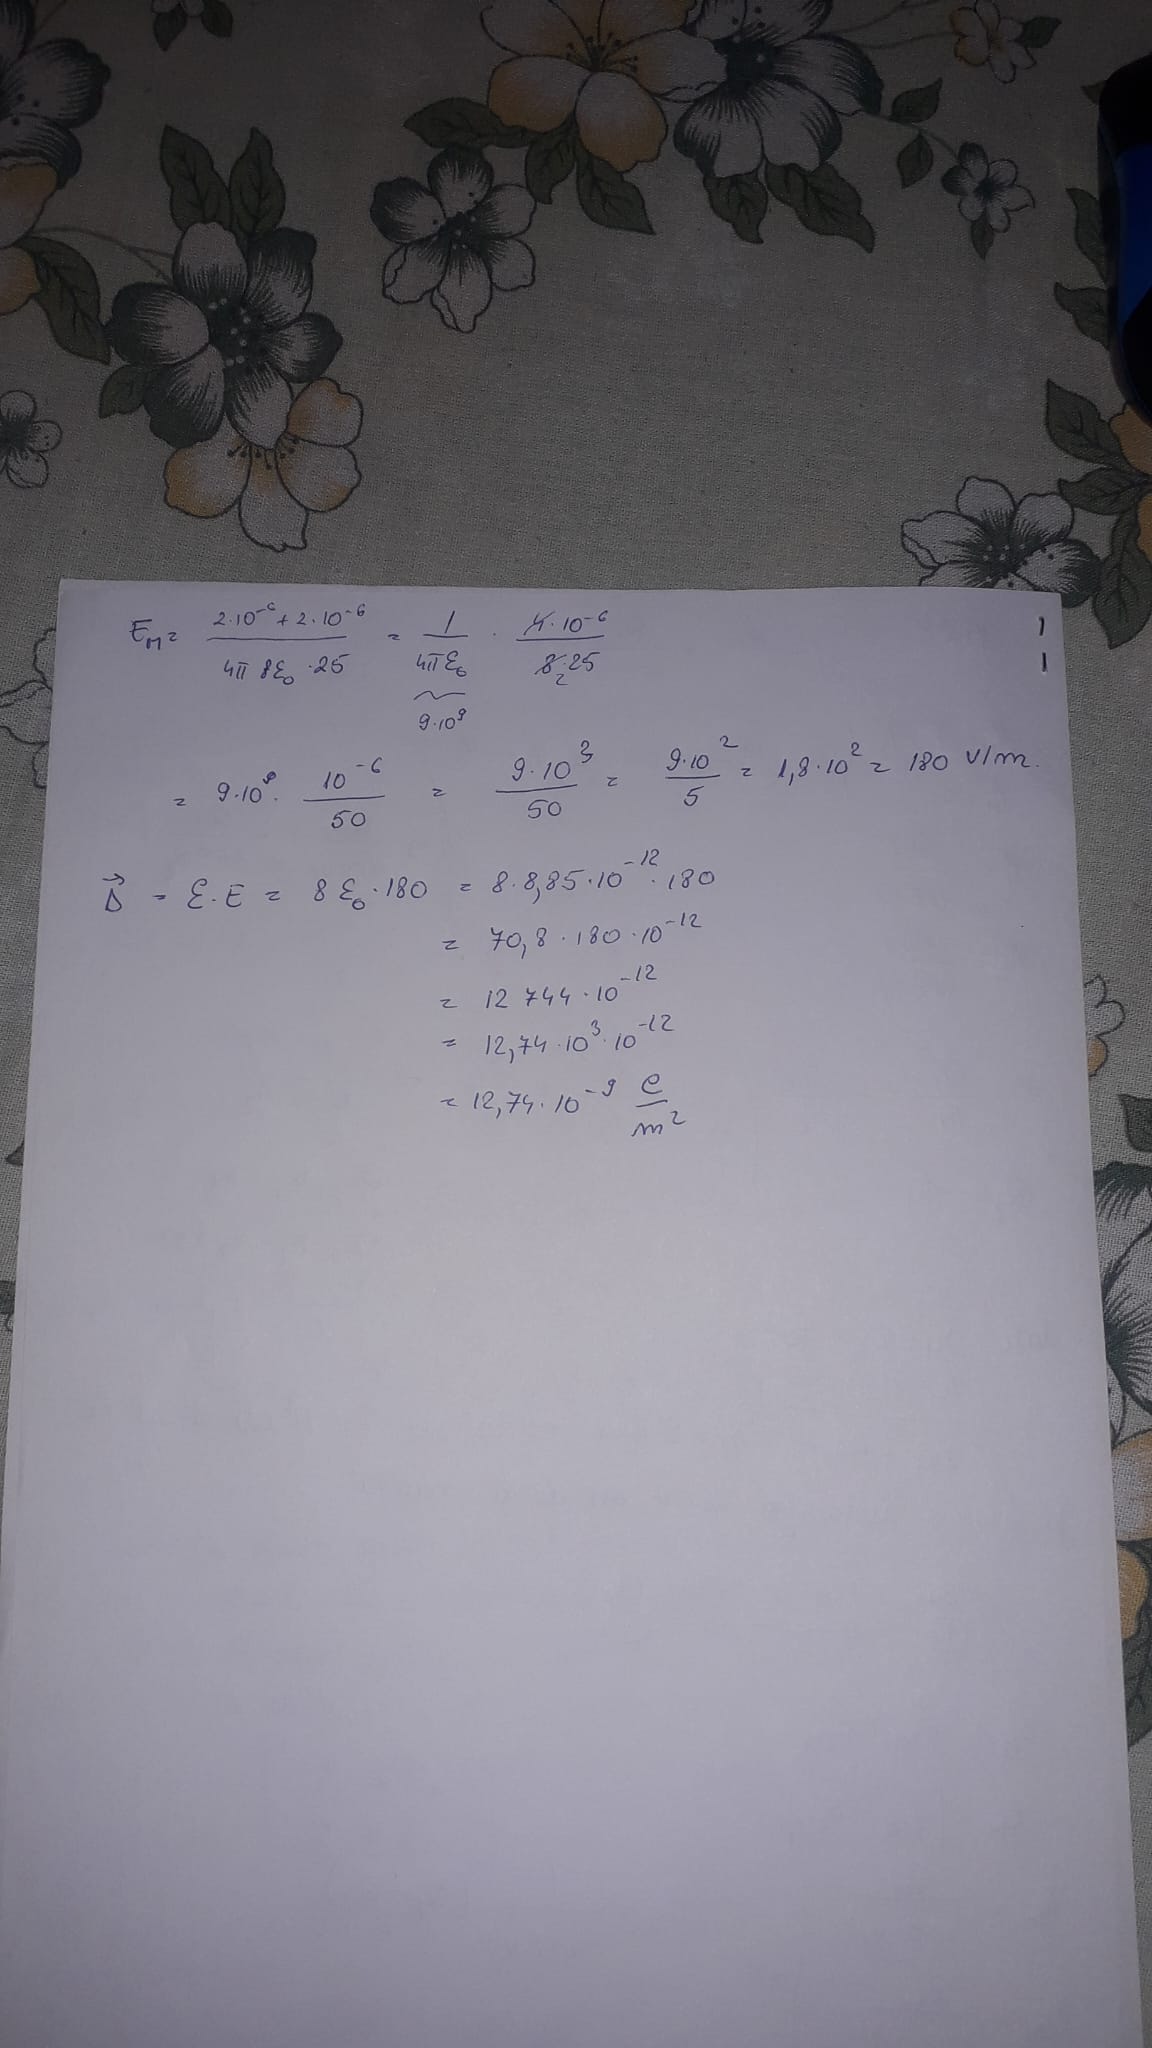 E_M = (2·10^-6 + 2·10^-6)/(4π 8ε₀ · 25) = 1/(4πε₀) · (4·10^-6)/(8·25)
2
9·10^9
= 9·10^9 · 10^-6/50 = 9·10^3/50 = 9·10^2/5 = 1,8·10^2 = 180 V/m.
D⃗ = ε·E = 8ε₀·180 = 8·8,85·10^-12·180
= 70,8·180·10^-12
= 12 744·10^-12
= 12,74·10^3·10^-12
= 12,74·10^-9 C/m^2